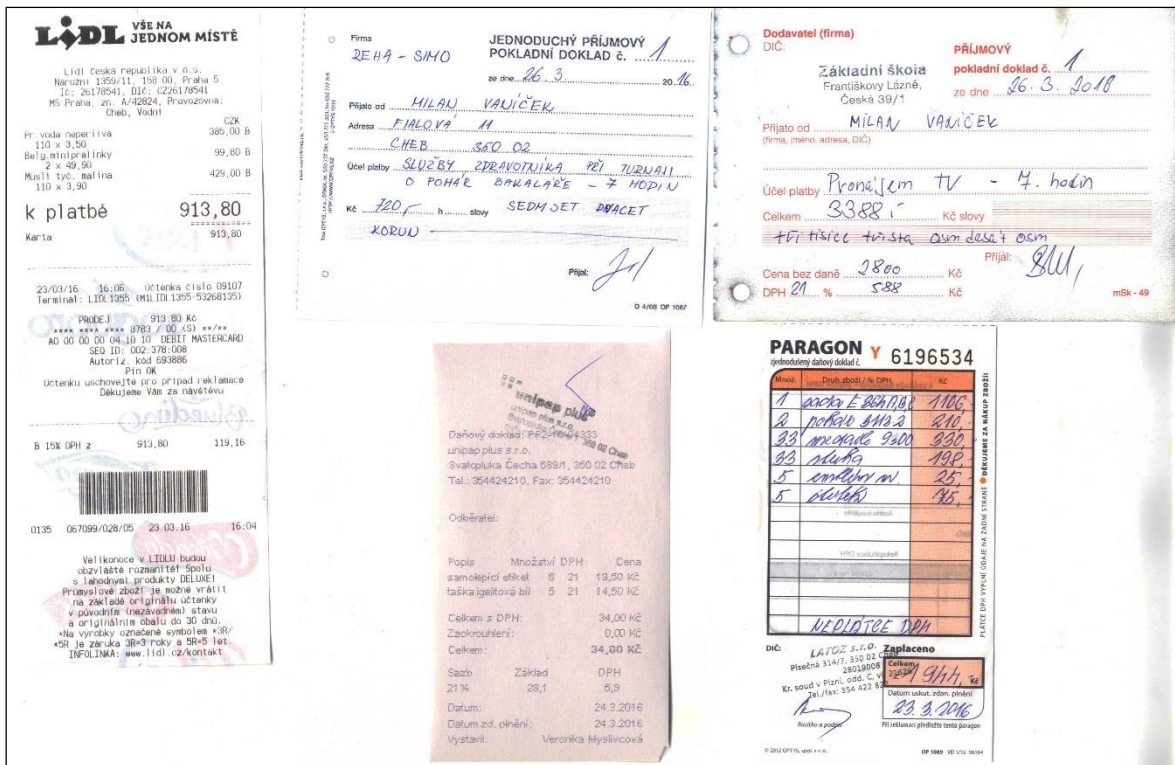 LIDL VŠE NA
JEDNOM MÍSTĚ
Lidl Česká republika v.o.s.
Nárožní 1359/11, 158 00, Praha 5
IČ: 26178541, DIČ: CZ26178541
MS Praha, zn. A/42824, Provozovna:
Cheb, Vodní
CZK
Pr.voda neperlivá 385,00 B
110 x 3,50
Belg.minipralinky 99,80 B
2 x 49,90
Musli tyč. malina 429,00 B
110 x 3,90
k platbě 913,80
Karta 913,80
23/03/16 16:06 Účtenka číslo 09107
Terminál: LIDL1355 (M1LIDL1355-53268135)
PRODEJ 913.80 Kč
**** **** **** 8783 / 00 (S) **/**
AD 00 00 00 04 10 10 DEBIT MASTERCARD
SEQ ID: 002:378:008
Autoriz. kód 693886
Pin OK
Účtenku uschovejte pro případ reklamace
Děkujeme Vám za návštěvu
B 15% DPH z 913,80 119,16
0135 067099/028/05 23.03.16 16:04
Velikonoce v LIDLU budou
obzvláště rozmanité! Spolu
s lahodnými produkty DELUXE!
Průmyslové zboží je možné vrátit
na základě originálu účtenky
v původním (nezávadném) stavu
a originálním obalu do 30 dnů.
*Na výrobky označené symbolem *3R/
*5R je záruka 3R=3 roky a 5R=5 let.
INFOLINKA: www.lidl.cz/kontakt
Firma
REHA - SIMO
JEDNODUCHÝ PŘÍJMOVÝ
POKLADNÍ DOKLAD č. 1
ze dne 26.3 2016.
Přijato od MILAN VANÍČEK
Adresa FIALOVÁ 11
CHEB 350 02
Účel platby SLUŽBY ZDRAVOTNÍKA PŘI TURNAJI
O POHÁR BAKALÁŘE - 7 HODIN
Kč 720,- h slovy SEDMSET DVACET
KORUN
Přijal:
O 4/08 OP 1087
Dodavatel (firma)
DIČ:
Základní škola
Františkovy Lázně,
Česká 39/1
PŘÍJMOVÝ
pokladní doklad č. 1
ze dne 26. 3. 2018
Přijato od MILAN VANÍČEK
(firma, jméno, adresa, DIČ)
Účel platby Pronájem TV - 7. hodin
Celkem 3388,- Kč slovy
tři tisíce třista osmdesát osm
Cena bez daně 2800 Kč
Přijal:
DPH 21 % 588 Kč
mSk - 49
unipap plus
unipap plus s.r.o.
350 02 Cheb
Daňový doklad:
unipap plus s.r.o.
Svatopluka Čecha 589/1, 350 02 Cheb
Tel.: 354424210, Fax: 354424210
Odběratel:
Popis Množství DPH Cena
samolepící etiket 5 21 19,50 Kč
taška igelitová bílí 5 21 14,50 Kč
Celkem s DPH: 34,00 Kč
Zaokrouhlení: 0,00 Kč
Celkem: 34,00 Kč
Sazb Základ DPH
21% 28,1 5,9
Datum: 24.3.2016
Datum zd. plnění: 24.3.2016
Vystavil: Veronika Myslivcová
PARAGON Y 6196534
zjednodušený daňový doklad č.
Množ. Druh zboží / % DPH Kč
1 1106,-
2 210,-
33 medaile 9300 330,-
33 stuha 198,-
5 25,-
5 75,-
NEPLÁTCE DPH
PLÁTCE DPH VYPLNÍ ÚDAJE NA ZADNÍ STRANĚ • DĚKUJEME ZA NÁKUP ZBOŽÍ!
DIČ:
LATOZ s.r.o.
Písečná 314/7, 350 02 Cheb
28019008
Kr. soud v Plzni, odd. C,
Tel./fax: 354 422
Zaplaceno
Celkem
1944,- Kč
Datum uskut. zdan. plnění
23. 3. 2016
Razítko a podpis
Při reklamaci předložte tento paragon
© 2012 OPTYS, spol. s r.o.
OP 1089